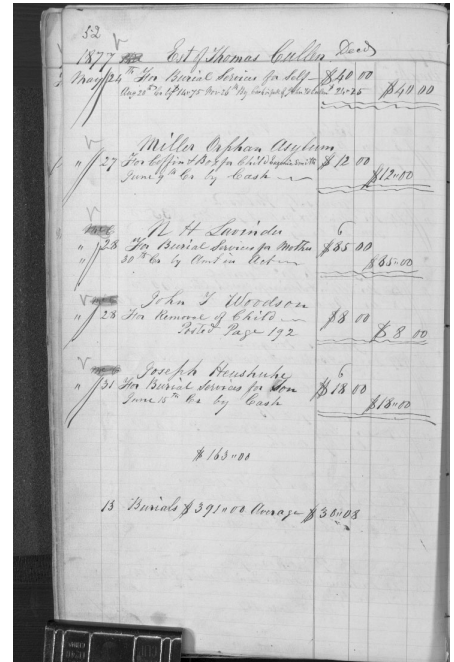 52
1877 Est of Thomas Cullen Decd
May 24th For Burial Services for Self $40 00
$40 00
Miller Orphan Asylum
" 27 For Coffin & Box for Child $12 00
June 9th Cr by Cash $12"00
N H Lavinder 6
" 28 For Burial Services for Mother $85 00
" 30th Cr by Amt in Act $85"00
John T Woodson
" 28 For Removal of Child $8 00
Posted Page 192 $8 00
Joseph 6
" 31 For Burial Services for Son $18 00
June 15th Cr by Cash $18"00
$163"00
13 Burials $391"00 Average $30"08